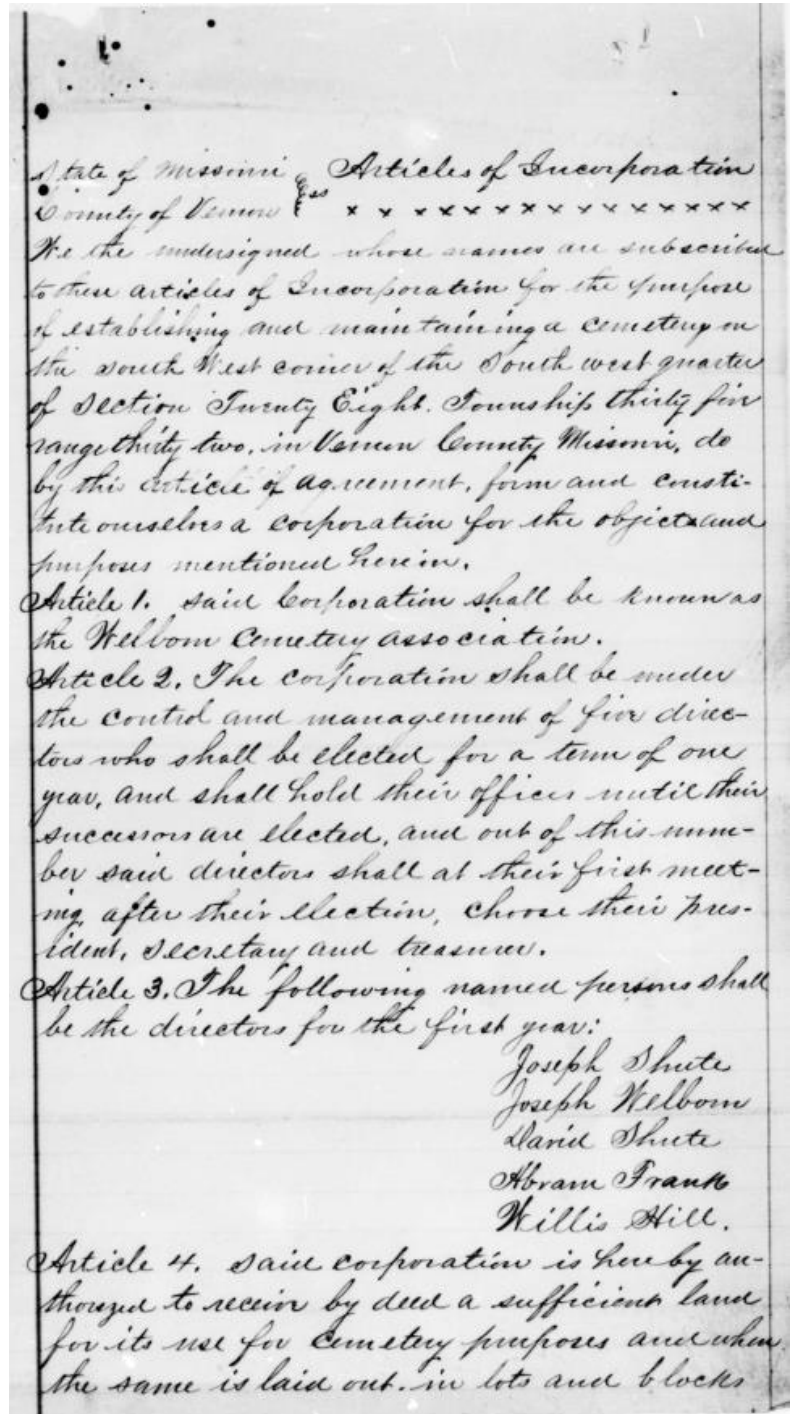 State of Missouri } ss Articles of Incorporation
County of Vernon } x x x x x x x x x x x x x x x x
We the undersigned whose names are subscribed
to these articles of Incorporation for the purpose
of establishing and maintaining a cemetery on
the south West corner of the South west quarter
of Section Twenty Eight. Township thirty five
range thirty two, in Vernon County Missouri, do
by this article of agreement, form and consti-
tute ourselves a corporation for the objects and
purposes mentioned herein.
Article 1. said Corporation shall be known as
the Welborn Cemetery association.
Article 2. The corporation shall be under
the control and management of five direc-
tors who shall be elected for a term of one
year, and shall hold their offices until their
successors are elected, and out of this num-
ber said directors shall at their first meet-
ing after their election, choose their pres-
ident, Secretary and treasurer.
Article 3. The following named persons shall
be the directors for the first year:
Joseph Shute
Joseph Welborn
David Shute
Abram Frank
Willis Hill.
Article 4. Said corporation is hereby au-
thorized to receive by deed a sufficient land
for its use for cemetery purposes and when
the same is laid out in lots and blocks